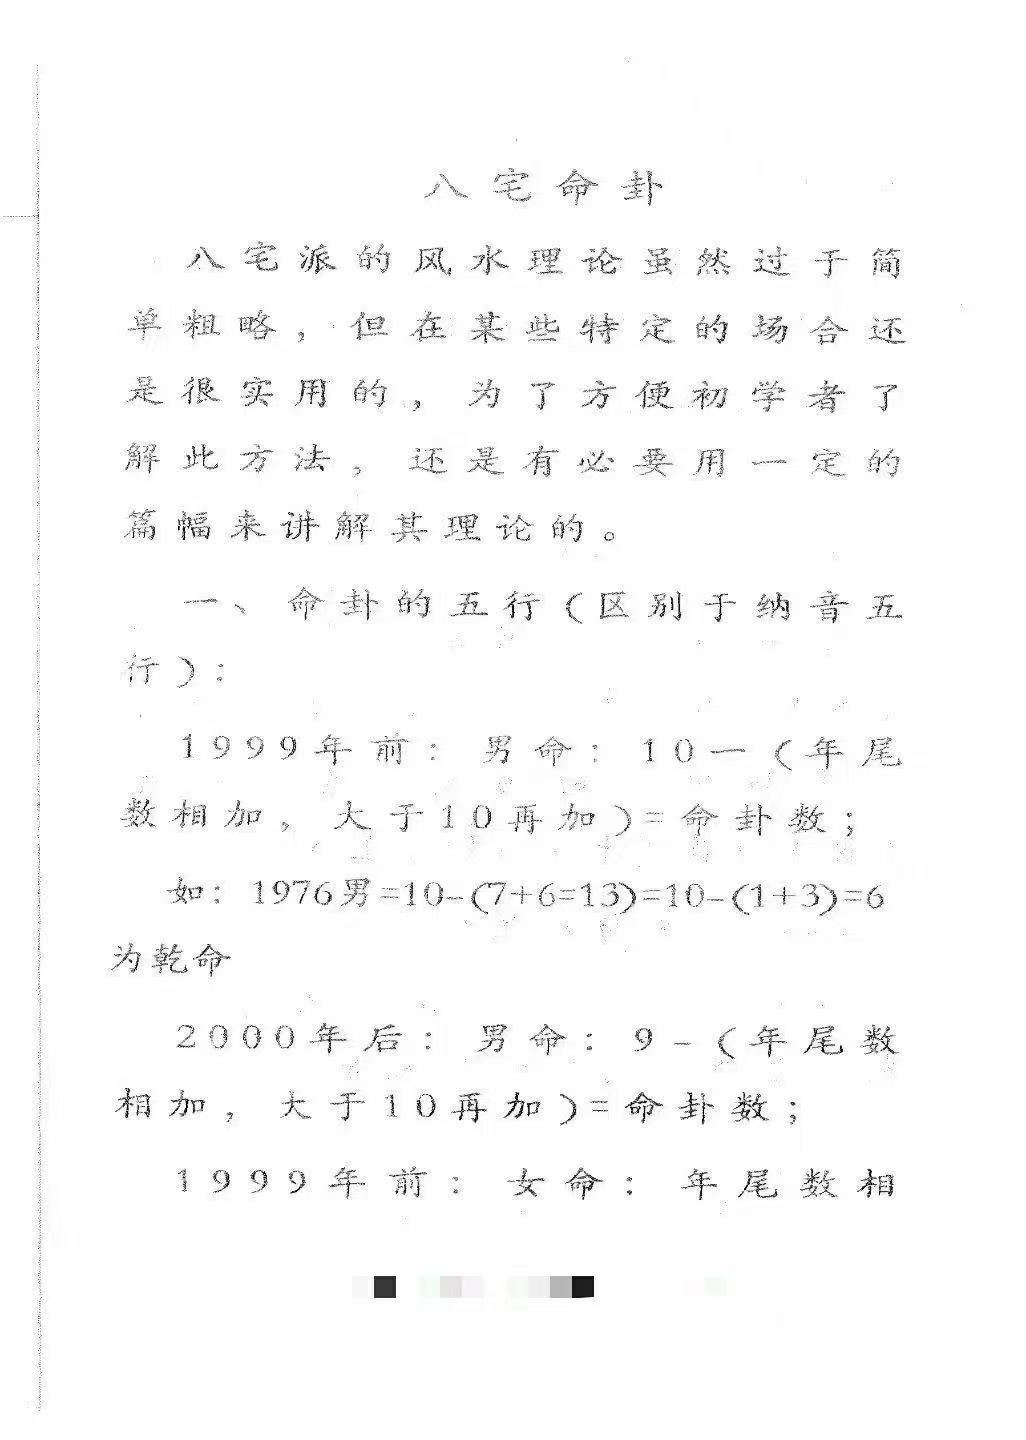 八宅命卦
八宅派的风水理论虽然过于简
单粗略，但在某些特定的场合还
是很实用的，为了方便初学者了
解此方法，还是有必要用一定的
篇幅来讲解其理论的。
一、命卦的五行（区别于纳音五
行）：
1999年前：男命：10一（年尾
数相加，大于10再加）=命卦数；
如：1976男=10-(7+6=13)=10-(1+3)=6
为乾命
2000年后：男命：9-（年尾数
相加，大于10再加）=命卦数；
1999年前：女命：年尾数相